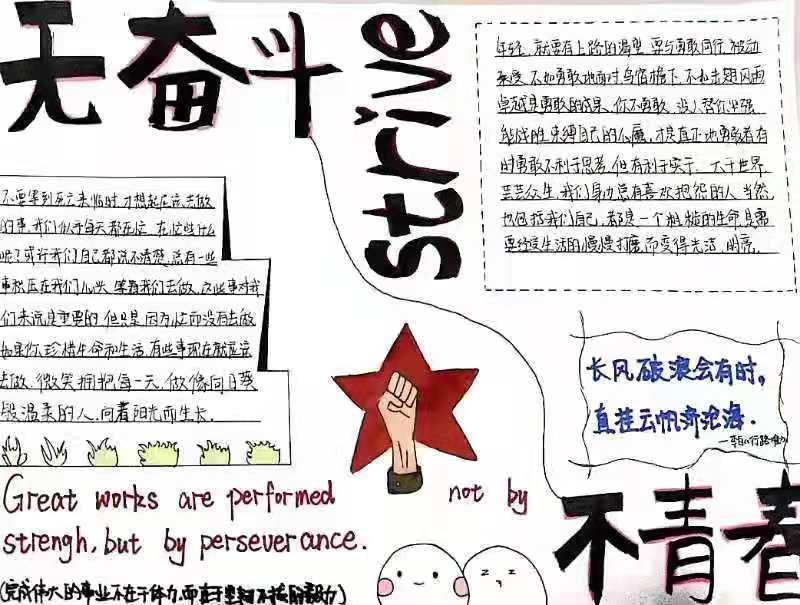 无奋斗
strive
年轻,就要有上路的渴望,要与勇敢同行,被动
承受,不如勇敢地面对,鸟宿檐下,不如击翅风雨
卓越是勇敢的成果,你不勇敢,没人替你坚强
能战胜束缚自己的心魔,才是真正地勇敢者,有
时勇敢不利于思考,但有利于实干.大千世界
芸芸众生,我们身边总有喜欢抱怨的人,当然,
也包括我们自己,都是一个粗糙的生命,是需
要经受生活的慢慢打磨,而变得光洁,明亮.
不要等到死亡来临时,才想起应该去做
的事,我们似乎每天都在忙,在忙些什么
呢?或许我们自己都说不清楚,总有一些
事积压在我们心头,等着我们去做,这些事对我
们来说是重要的,但只是因为忙而没有去做
如果你珍惜生命和生活,有些事现在就应该
去做,微笑拥抱每一天,做像向日葵
般温柔的人,向着阳光而生长.
长风破浪会有时,
直挂云帆济沧海.
—李白《行路难》
Great works are performed not by
strengh, but by perseverance.
(完成伟大的事业不在于体力,而在于坚韧不拔的毅力)
不青春